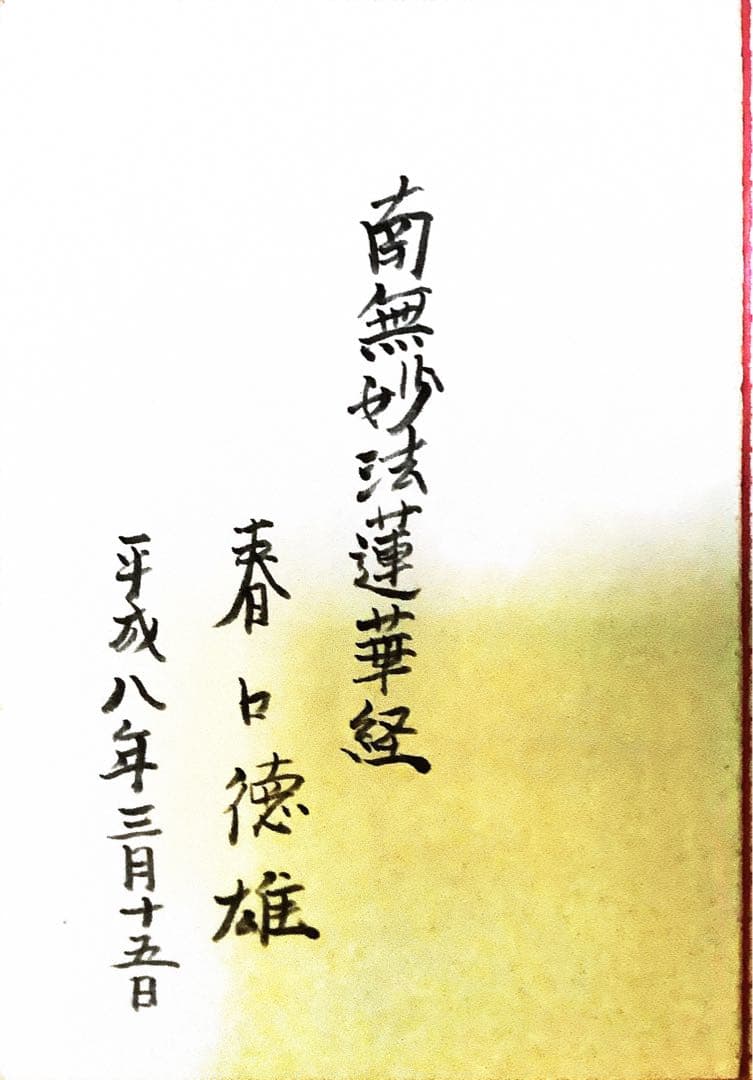 南無妙法蓮華経
春口徳雄
平成八年三月十五日